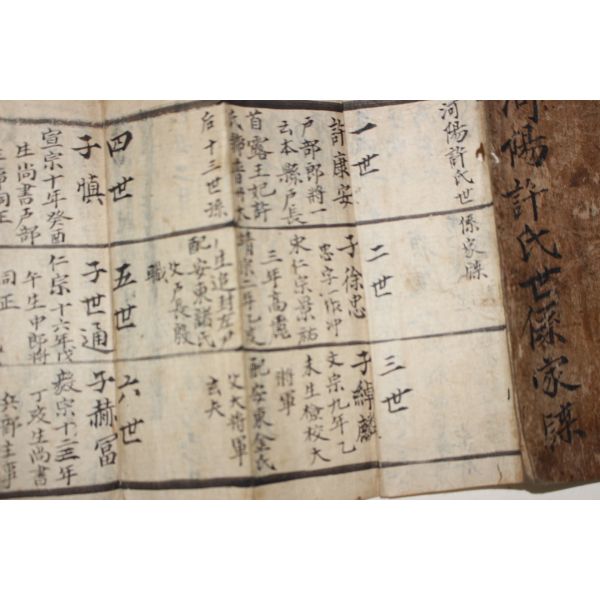 河陽許氏世係家牒
河陽許氏世係家牒
一世
許康安
戶部郎將一
云本縣戶長
首露王記許
后十三世孫
二世
子徐忠
忠字一作冲
宋仁宗景祐
三年高麗
靖宗二年
生追封左
配安東諸氏
父戶長殷
職
三世
子綽麟
文宗九年乙
未生檢校大
將軍
配安東金氏
父大將軍
玄夫
四世
子愼
宣宗十年癸酉
生尚書戶部
五世
子世通
仁宗十六年戊
午生中郎將
同正
六世
子赫冨
毅宗十二三年
丁亥生尚書
兵部主事